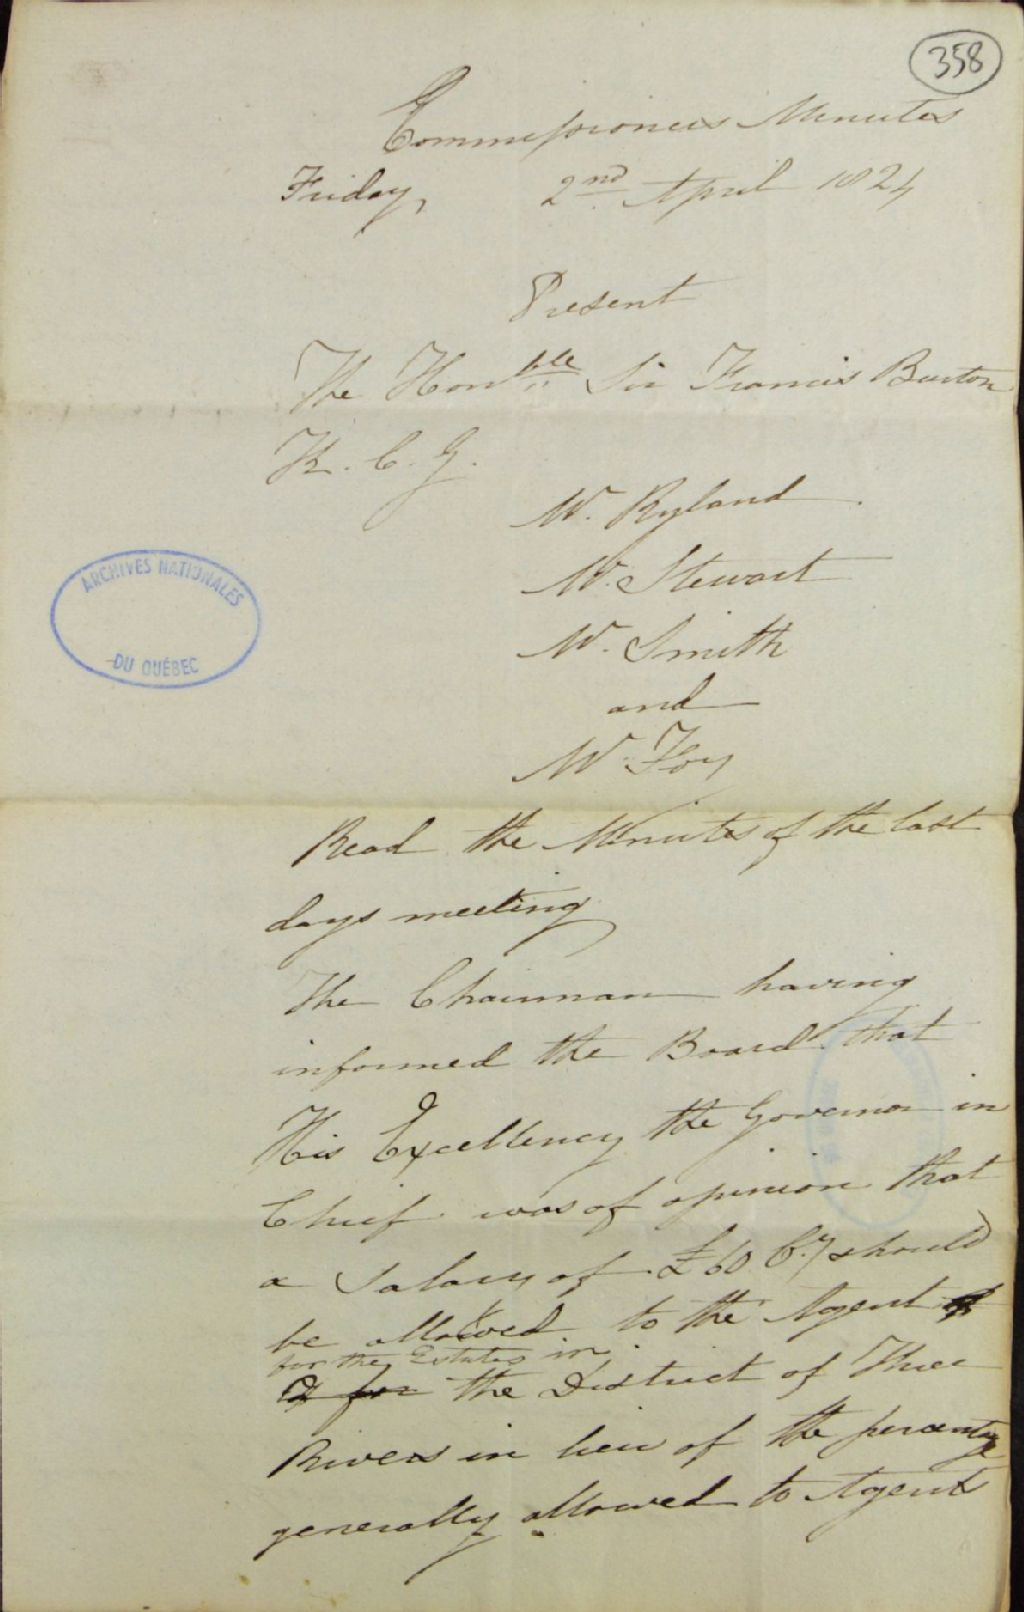 358
Commissioners Minutes
Friday, 2nd April 1824
Present
The Honble Sir Francis Burton
K. C. G.
Mr. Ryland
Mr. Stewart
Mr. Smith
and
Mr. Foy
Read the Minutes of the last
days meeting
The Chairman having
informed the Board that
His Excellency the Governor in
Chief was of opinion that
a Salary of £60 Cy should
be allowed to the Agent
for the Estates in
for the District of Three
Rivers in lieu of the percentage
generally allowed to Agents
ARCHIVES NATIONALES
DU QUÉBEC